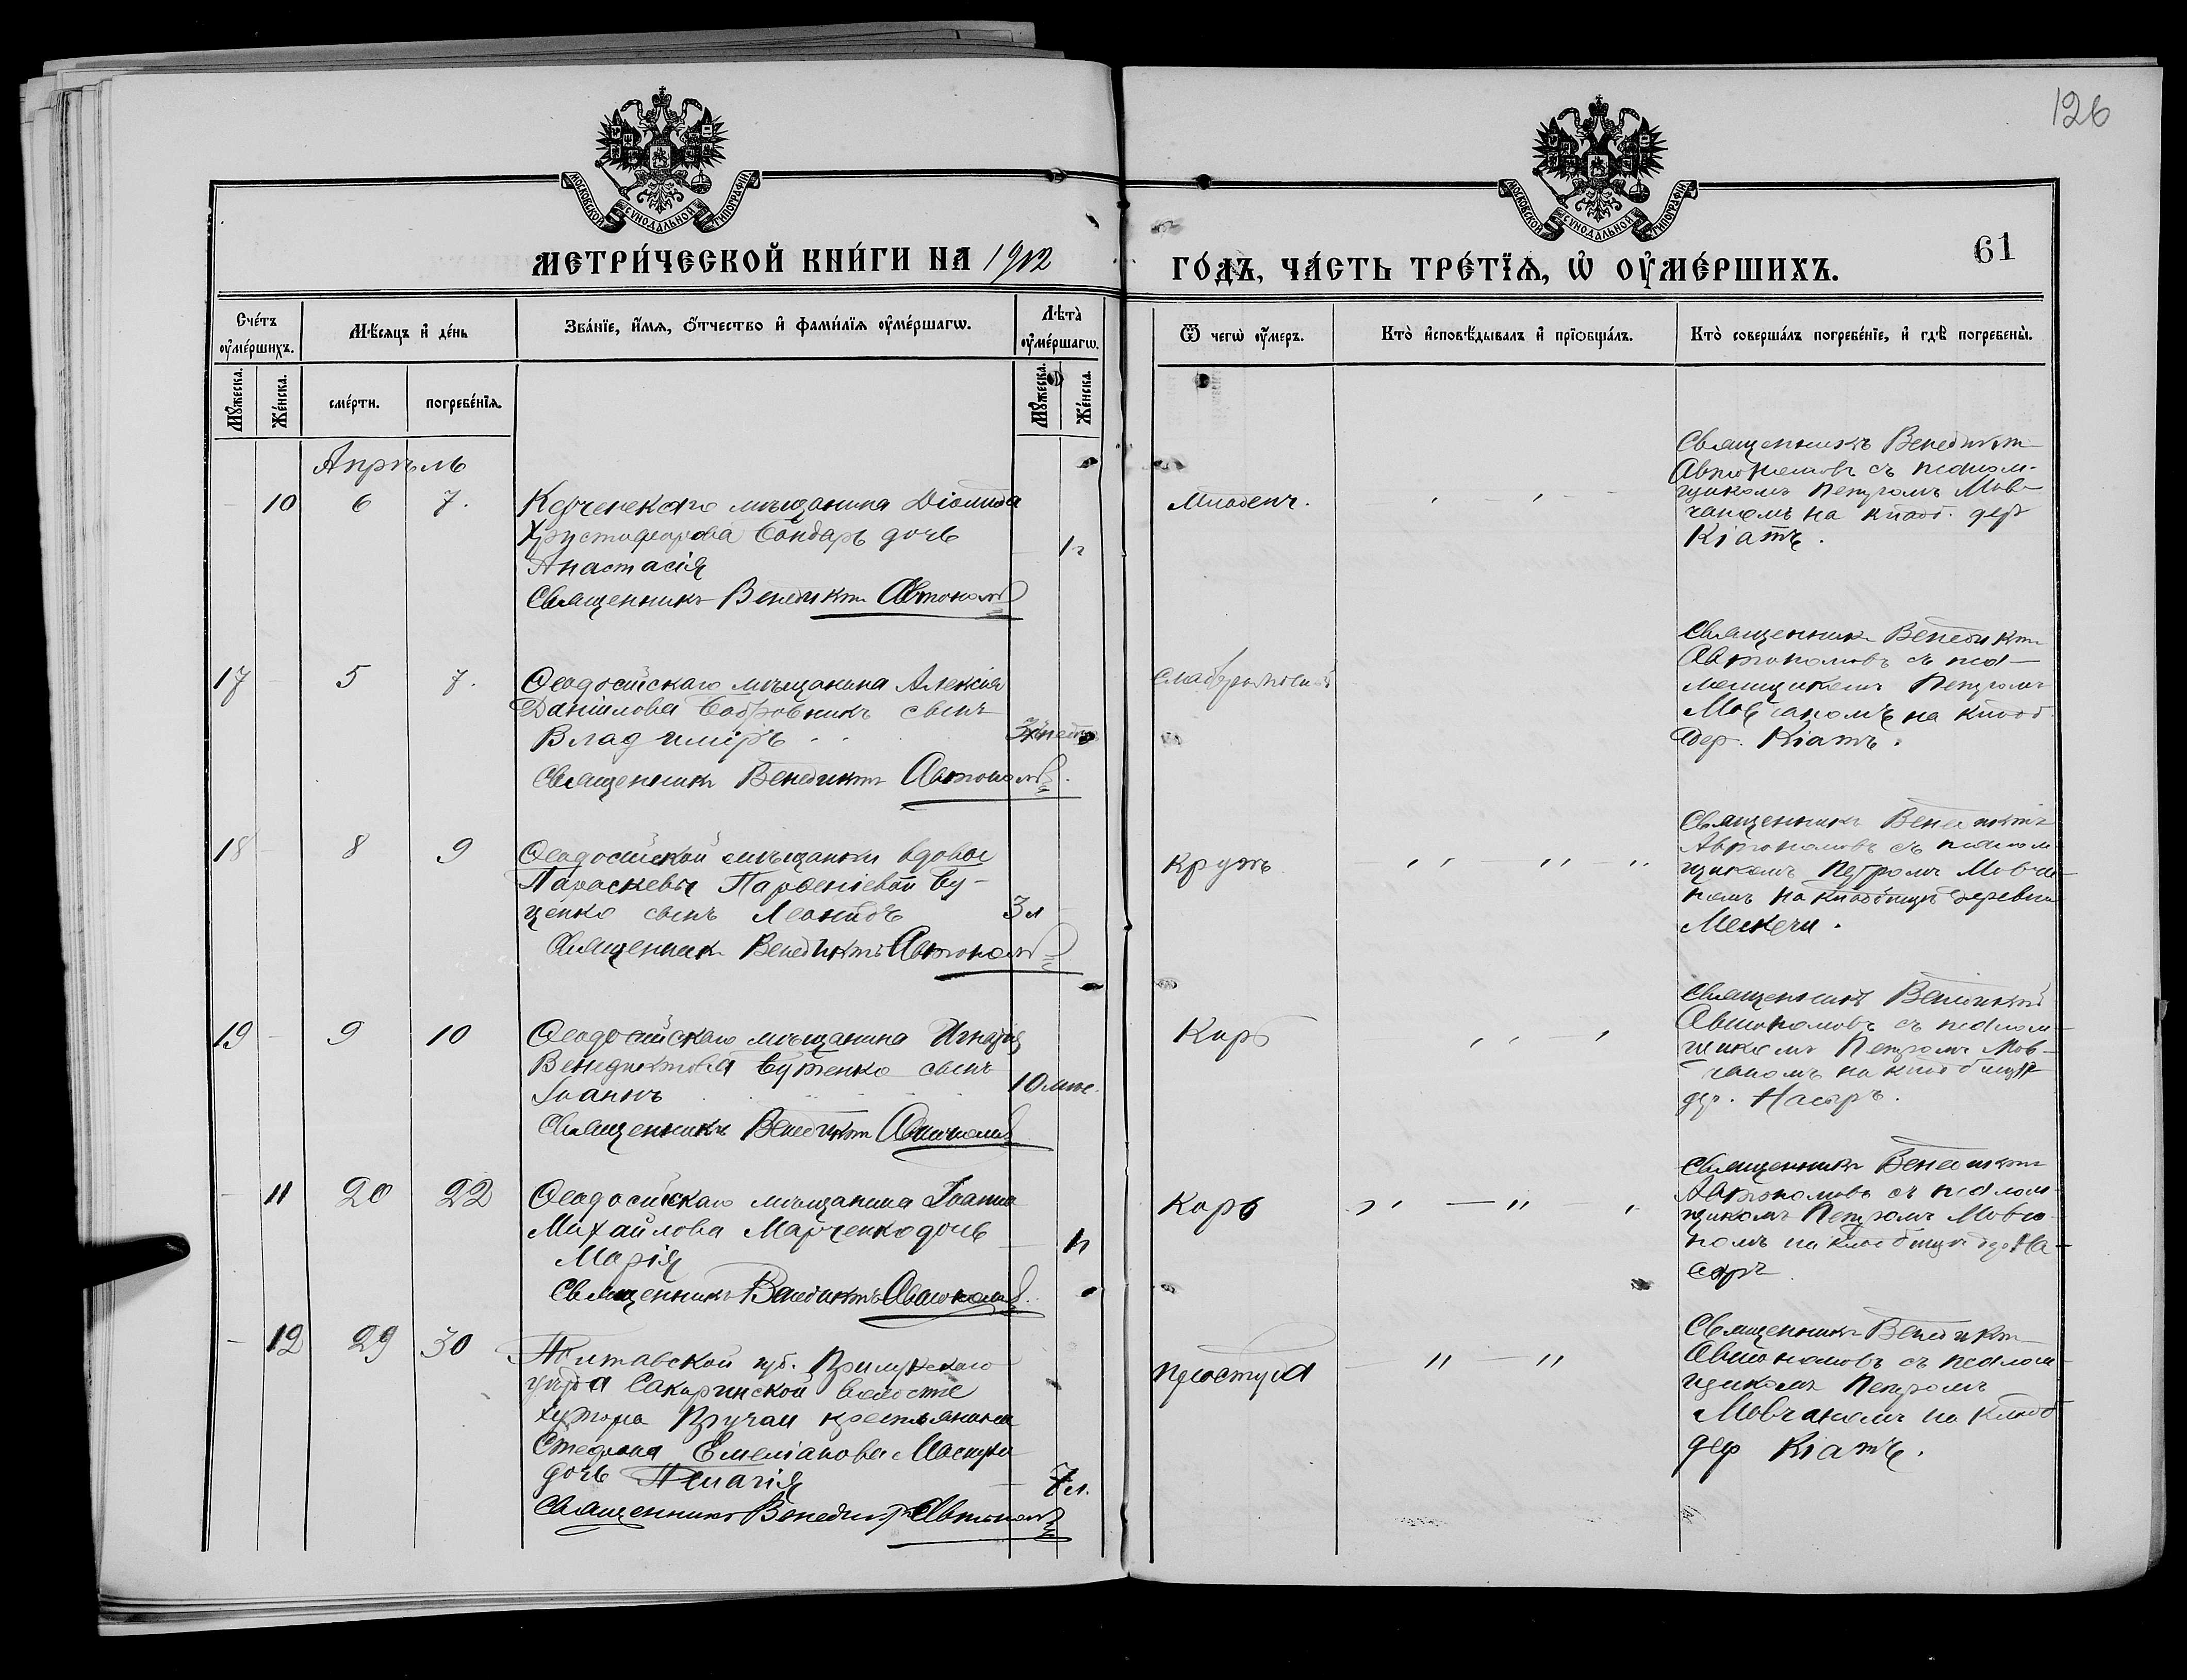 126
МОСКОВСКОЙ СѴНОДАЛЬНОЙ ТИПОГРАФІИ
МОСКОВСКОЙ СѴНОДАЛЬНОЙ ТИПОГРАФІИ
МЕТРИ́ЧЕСКОЙ КНИ́ГИ НА 1912
ГО́ДЪ, ЧА́СТЬ ТРЕ́ТЇѦ, Ѡ҆ ОУ҆МЕ́РШИХЪ.
61
Сче́тъ оу҆ме́ршихъ.
Мѣ́сѧцъ и҆ де́нь
Зва́нїе, и҆́мѧ, ѻ҆́тчество и҆ фами́лїѧ оу҆ме́ршагѡ.
Лѣ́та оу҆ме́ршагѡ.
Ѿ чегѡ̀ оу҆́меръ.
Кто̀ и҆сповѣ́дывалъ и҆ прїѡбща́лъ.
Кто̀ соверша́лъ погребе́нїе, и҆ гдѣ̀ погребены̀.
Мꙋ́жеска.
Же́нска.
сме́рти.
погребе́нїѧ.
Мꙋ́жеска.
Же́нска.
Апрѣль
10 6 7.
Керченскаго мѣщанина Діомида
Христофорова Бондарь дочь
Анастасія 1 г
Священникъ Венедиктъ Автономовъ
Младенч.
Священникъ Венедиктъ
Автономовъ съ псалом-
щикомъ Петромъ Мов-
чаномъ на кладб. дер
Кіатъ.
17 5 7.
Ѳеодосійскаго мѣщанина Алексія
Даніилова Бобровникъ сынъ
Владиміръ
Священникъ Венедиктъ Автономовъ.
Священникъ Венедиктъ
Автономовъ съ псал-
мощикомъ Петромъ
Мовчаномъ на кладб.
дер. Кіатъ.
18 8 9
Ѳеодосійской мѣщанки вдовы
Параскевы Парѳеніевой Бу-
ценко сынъ Леонидъ 3 л
Священникъ Венедиктъ Автономовъ
Крупъ
Священникъ Венедиктъ
Автономовъ съ псалом
щикомъ Петромъ Мовча-
номъ на кладбищѣ деревни
Мескечи.
19 9 10
Ѳеодосійскаго мѣщанина Игнатія
Венедиктова Бутенко сынъ
Іоаннъ 10 мѣс.
Священникъ Венедиктъ Автономовъ
Корь
Священникъ Венедиктъ
Автономовъ съ псалом-
щикомъ Петромъ Мов-
чаномъ на кладбищѣ
дер. Насыръ.
11 20 22
Ѳеодосійскаго мѣщанина Іоанна
Михайлова Марченко дочь
Марія
Священникъ Венедиктъ Автономовъ.
Корь
Священникъ Венедиктъ
Автономовъ съ псалом-
щикомъ Петромъ Мовча-
номъ на кладбищѣ дер На-
сыръ
12 29 30
Полтавской губ. Прилукскаго
уѣзда волости
хутора крестьянина
Стефана Емеліанова
дочь Пелагія 7 л.
Священникъ Венедиктъ Автономовъ
простуда
Священникъ Венедиктъ
Автономовъ съ псалом-
щикомъ Петромъ
Мовчаномъ на кладб
дер Кіатъ.